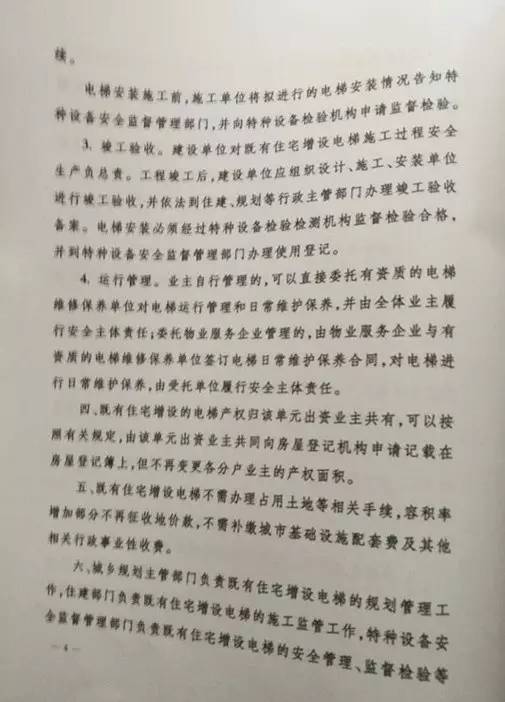 续。
电梯安装施工前,施工单位将拟进行的电梯安装情况告知特
种设备安全监督管理部门,并向特种设备检验机构申请监督检验。
3. 竣工验收。建设单位对既有住宅增设电梯施工过程安全
生产负总责。工程竣工后,建设单位应组织设计、施工、安装单位
进行竣工验收,并依法到住建、规划等行政主管部门办理竣工验收
备案。电梯安装必须经过特种设备检验检测机构监督检验合格,
并到特种设备安全监督管理部门办理使用登记。
4. 运行管理。业主自行管理的,可以直接委托有资质的电梯
维修保养单位对电梯运行管理和日常维护保养,并由全体业主履
行安全主体责任;委托物业服务企业管理的,由物业服务企业与有
资质的电梯维修保养单位签订电梯日常维护保养合同,对电梯进
行日常维护保养,由受托单位履行安全主体责任。
四、既有住宅增设的电梯产权归该单元出资业主共有,可以按
照有关规定,由该单元出资业主共同向房屋登记机构申请记载在
房屋登记簿上,但不再变更各分户业主的产权面积。
五、既有住宅增设电梯不需办理占用土地等相关手续,容积率
增加部分不再征收地价款,不需补缴城市基础设施配套费及其他
相关行政事业性收费。
六、城乡规划主管部门负责既有住宅增设电梯的规划管理工
作,住建部门负责既有住宅增设电梯的施工监管工作,特种设备安
全监督管理部门负责既有住宅增设电梯的安全管理、监督检验等
— 4 —